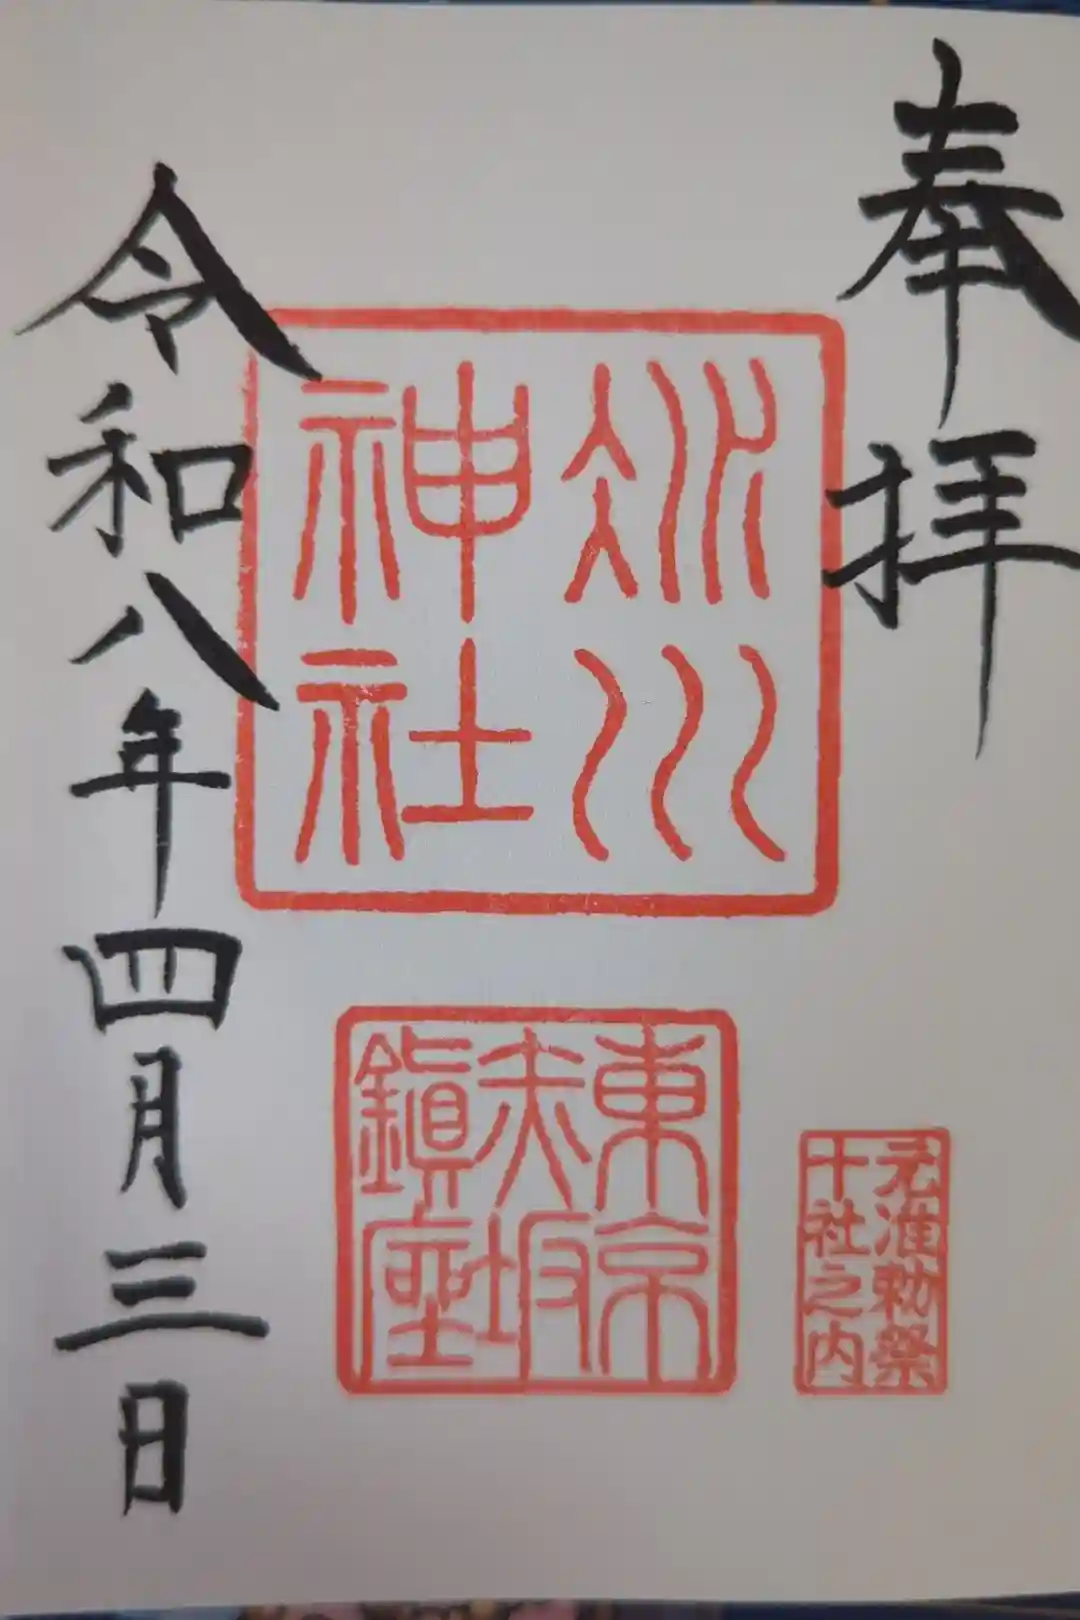 奉拝
氷川
神社
東京
赤坂
鎮座
元准勅祭
十社之内
令和八年四月三日